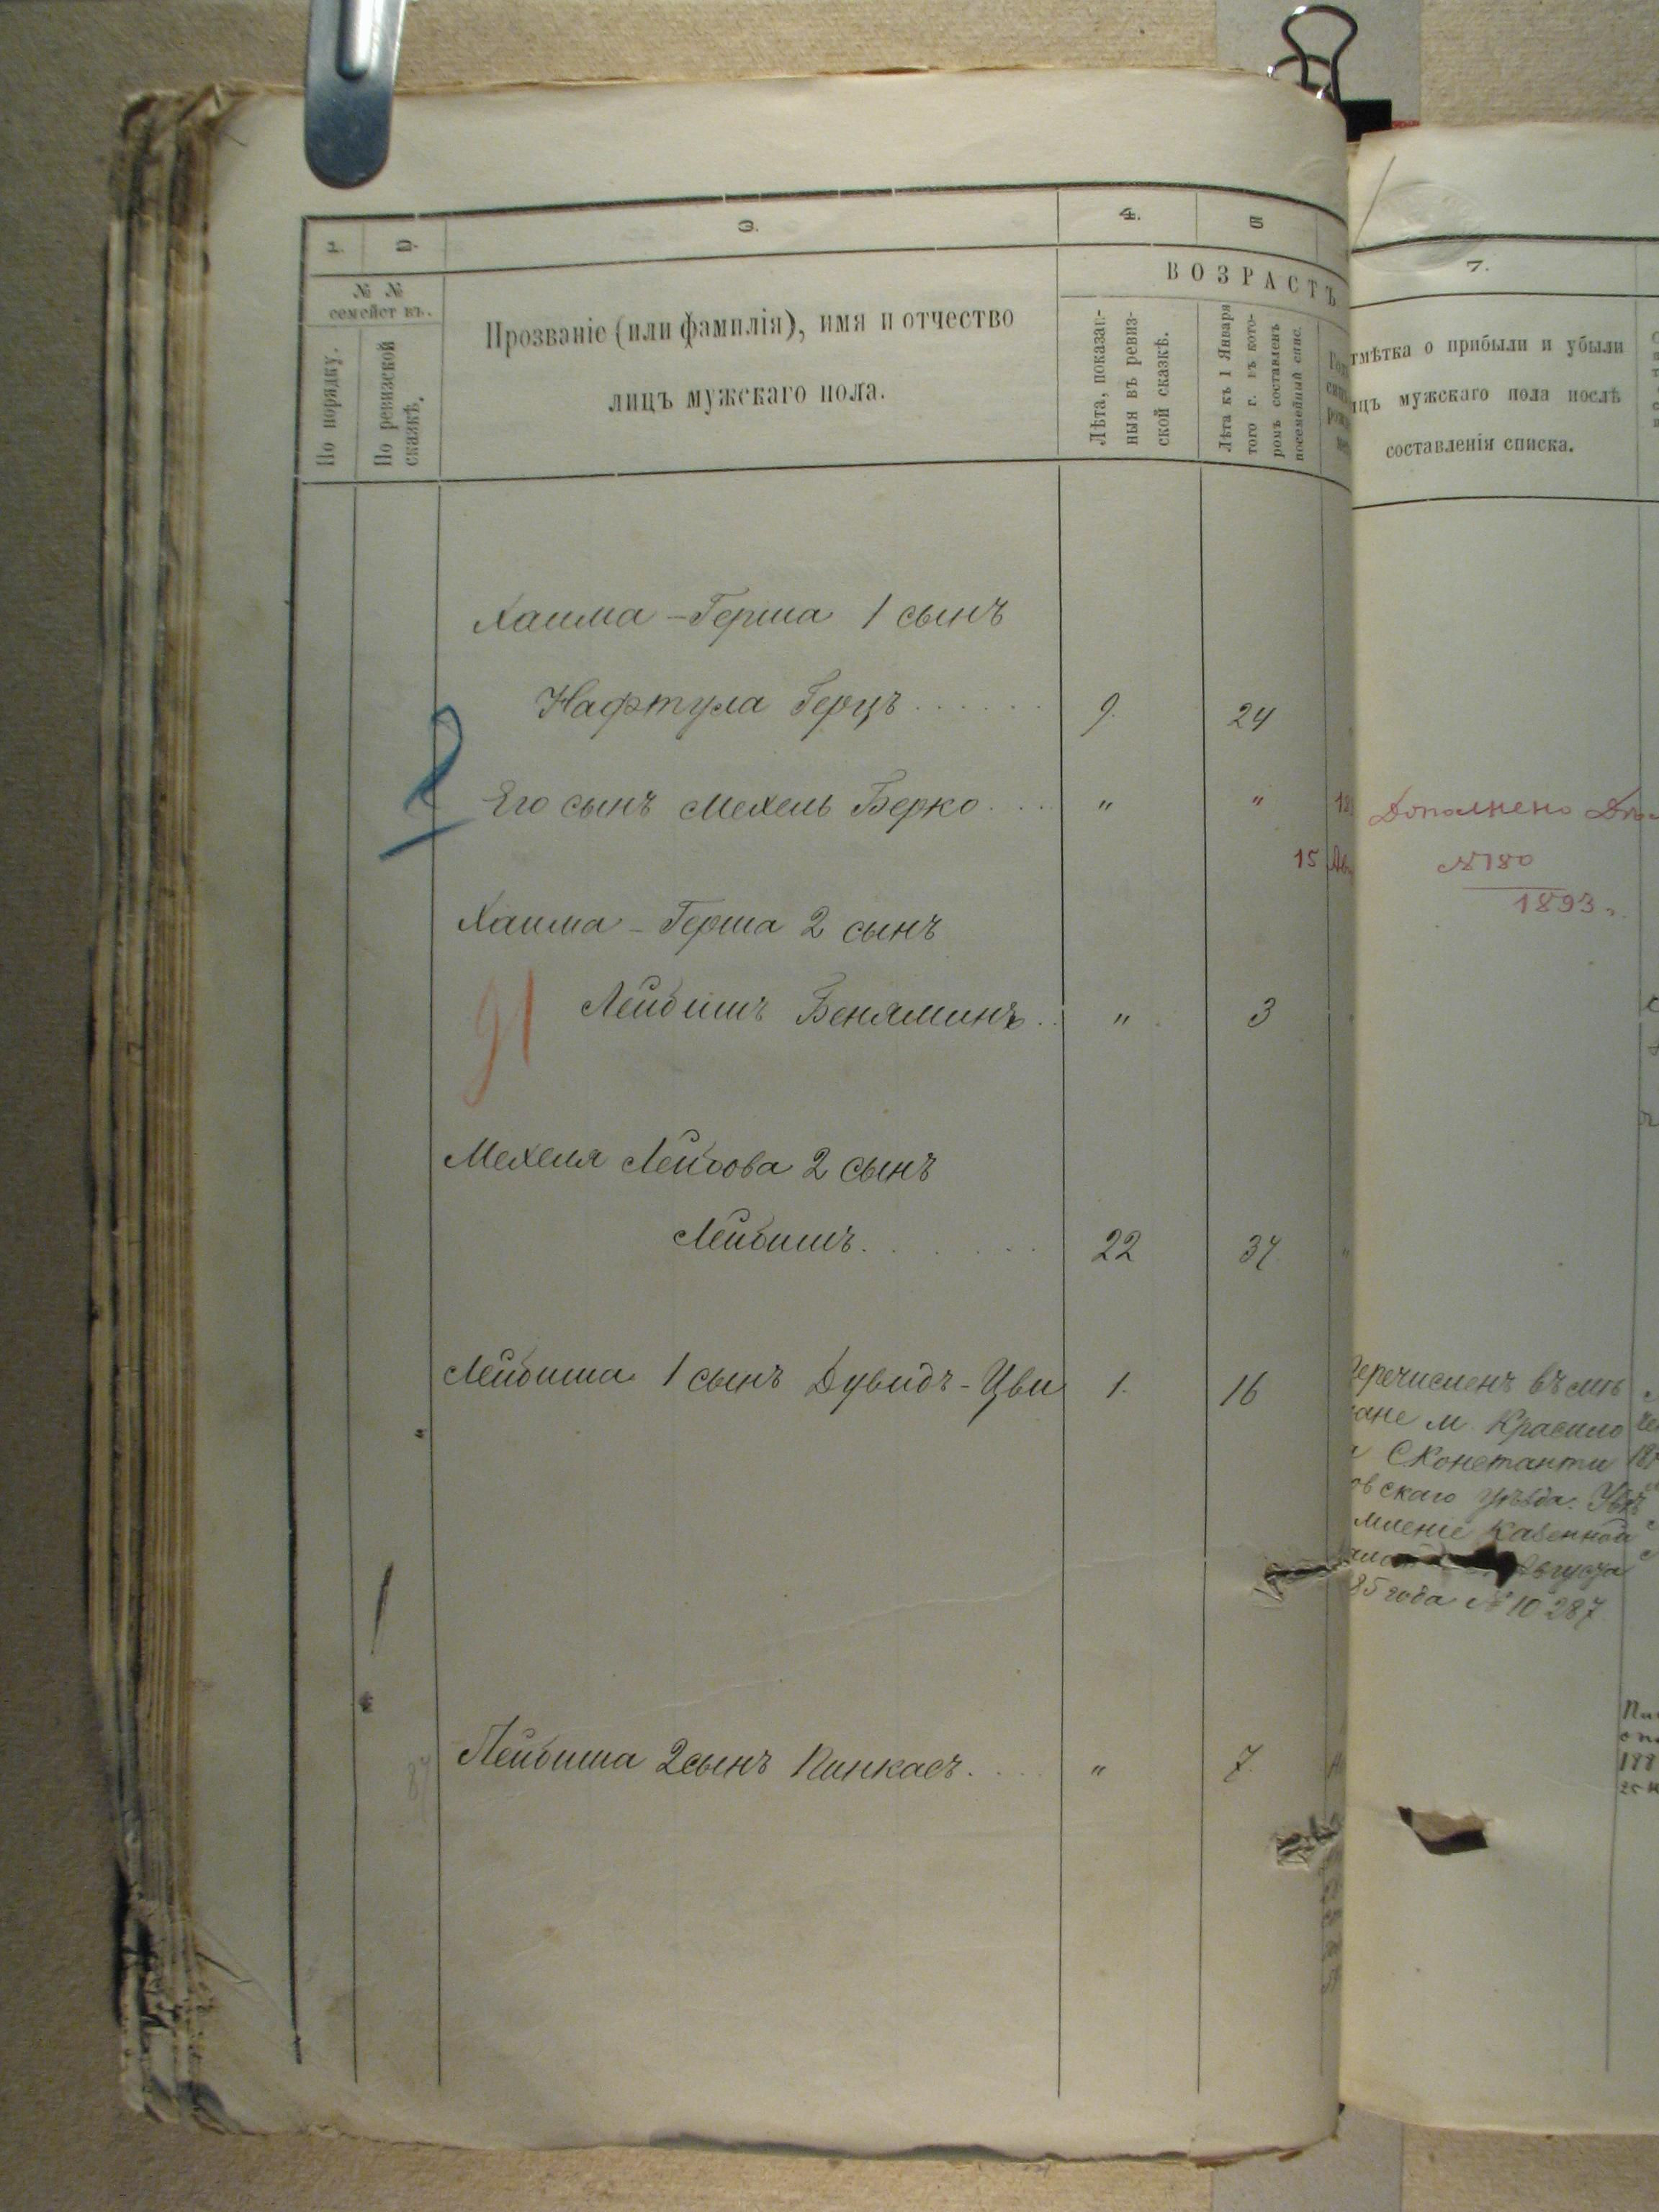 1. 2. 3. 4. 5
№ № семействъ.
По порядку.
По ревизской сказкѣ.
Прозваніе (или фамилія), имя и отчество
лицъ мужскаго пола.
ВОЗРАСТЪ
Лѣта, показан-
ныя въ ревиз-
ской сказкѣ.
Лѣта къ 1 Января
того г. въ кото-
ромъ составленъ
посемейный спис.
Хаима-Герша 1 сынъ
Нафтула Герцъ . . . . . . 9. 24
Его сынъ Мехель Берко . . . " "
15
Хаима-Герша 2 сынъ
91
Лейбишъ Беняминъ . . " 3
Мехеля Лейбова 2 сынъ
Лейбишъ . . . . . . 22 37
Лейбиша 1 сынъ Дувидъ-Цви 1. 16
"
Лейбиша 2 сынъ Пинкасъ . . . " 7.
87
7.
тмѣтка о прибыли и убыли
ицъ мужскаго пола послѣ
составленія списка.
Дополнено
№ 180
1893 г.
еречисленъ въ мѣ
ане м. Красило
Константи
овскаго уѣзда. Увѣ
мленіе Казенной
Августа
85 года № 10287
188